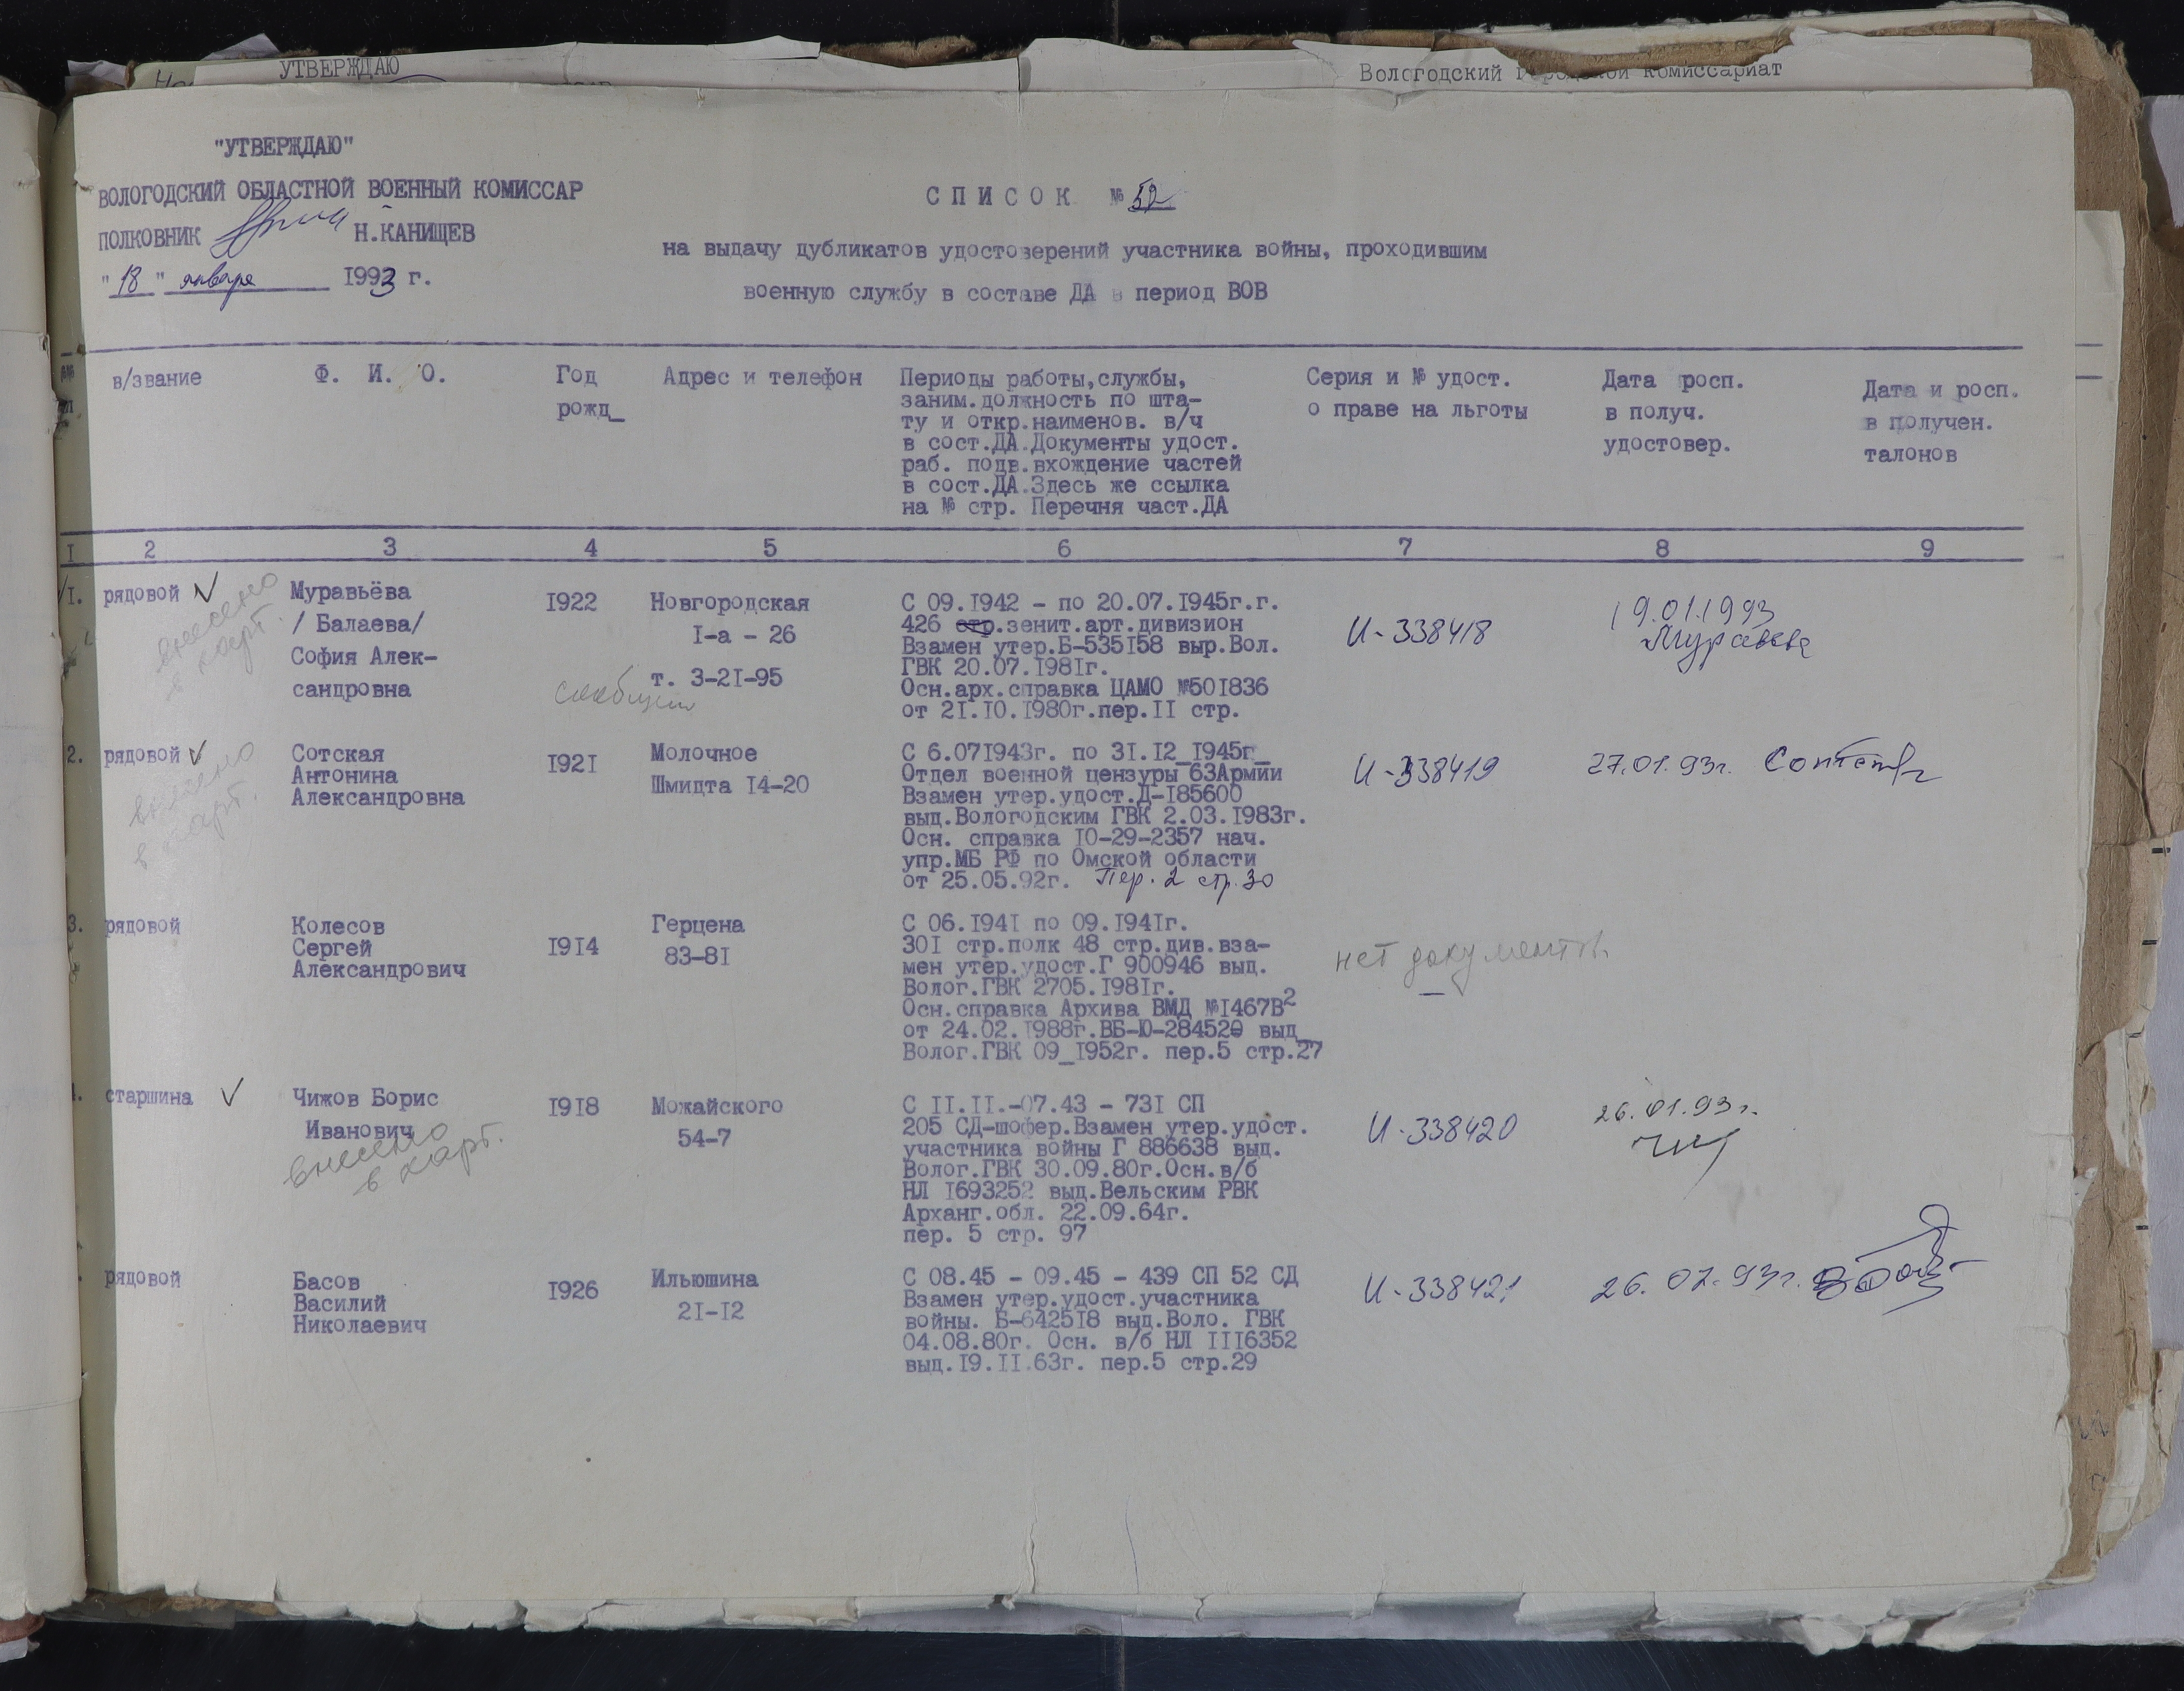 УТВЕРЖДАЮ
Вологодский комиссариат
"УТВЕРЖДАЮ"
ВОЛОГОДСКИЙ ОБЛАСТНОЙ ВОЕННЫЙ КОМИССАР
ПОЛКОВНИК Н.КАНИЩЕВ
"18" января 1993 г.
С П И С О К № 52
на выдачу дубликатов удостоверений участника войны, проходившим
военную службу в составе ДА в период ВОВ
в/звание
Ф. И. О.
Год
рожд_
Адрес и телефон
Периоды работы,службы,
заним.должность по шта-
ту и откр.наименов. в/ч
в сост.ДА.Документы удост.
раб. подв.вхождение частей
в сост.ДА.Здесь же ссылка
на № стр. Перечня част.ДА
Серия и № удост.
о праве на льготы
Дата росп.
в получ.
удостовер.
Дата и росп.
в получен.
талонов
I 2 3 4 5 6 7 8 9
I. рядовой √
внесено
в карт.
Муравьёва
/ Балаева/
София Алек-
сандровна
I922
Новгородская
I-а - 26
т. 3-2I-95
сообщили
С 09.I942 - по 20.07.I945г.г.
426 стр.зенит.арт.дивизион
Взамен утер.Б-535I58 выр.Вол.
ГВК 20.07.I98Iг.
Осн.арх.справка ЦАМО №50I836
от 2I.I0.I980г.пер.II стр.
И-338418
19.01.1993
Муравьева
2. рядовой √
внесено
в карт.
Сотская
Антонина
Александровна
I92I
Молочное
Шмидта I4-20
С 6.07I943г. по 3I.I2_I945г_
Отдел военной цензуры 63Армии
Взамен утер.удост.Д-I85600
выд.Вологодским ГВК 2.03.I983г.
Осн. справка I0-29-2357 нач.
упр.МБ РФ по Омской области
от 25.05.92г. Пер. 2 стр. 30
И-338419
27.01.93г.
3. рядовой
Колесов
Сергей
Александрович
I9I4
Герцена
83-8I
С 06.I94I по 09.I94Iг.
30I стр.полк 48 стр.див.вза-
мен утер.удост.Г 900946 выд.
Волог.ГВК 2705.I98Iг.
Осн.справка Архива ВМД №I467В2
от 24.02.I988г.ВБ-Ю-284520 выд_
Волог.ГВК 09_I952г. пер.5 стр.27
нет документов
старшина √
Чижов Борис
Иванович
внесено
в карт.
I9I8
Можайского
54-7
С II.II.-07.43 - 73I СП
205 СД-шофер.Взамен утер.удост.
участника войны Г 886638 выд.
Волог.ГВК 30.09.80г.Осн.в/б
НЛ I693252 выд.Вельским РВК
Арханг.обл. 22.09.64г.
пер. 5 стр. 97
И-338420
26.01.93г.
рядовой
Басов
Василий
Николаевич
I926
Ильюшина
2I-I2
С 08.45 - 09.45 - 439 СП 52 СД
Взамен утер.удост.участника
войны. Б-6425I8 выд.Воло. ГВК
04.08.80г. Осн. в/б НЛ III6352
выд.I9.II.63г. пер.5 стр.29
И-338421
26.02.93г.